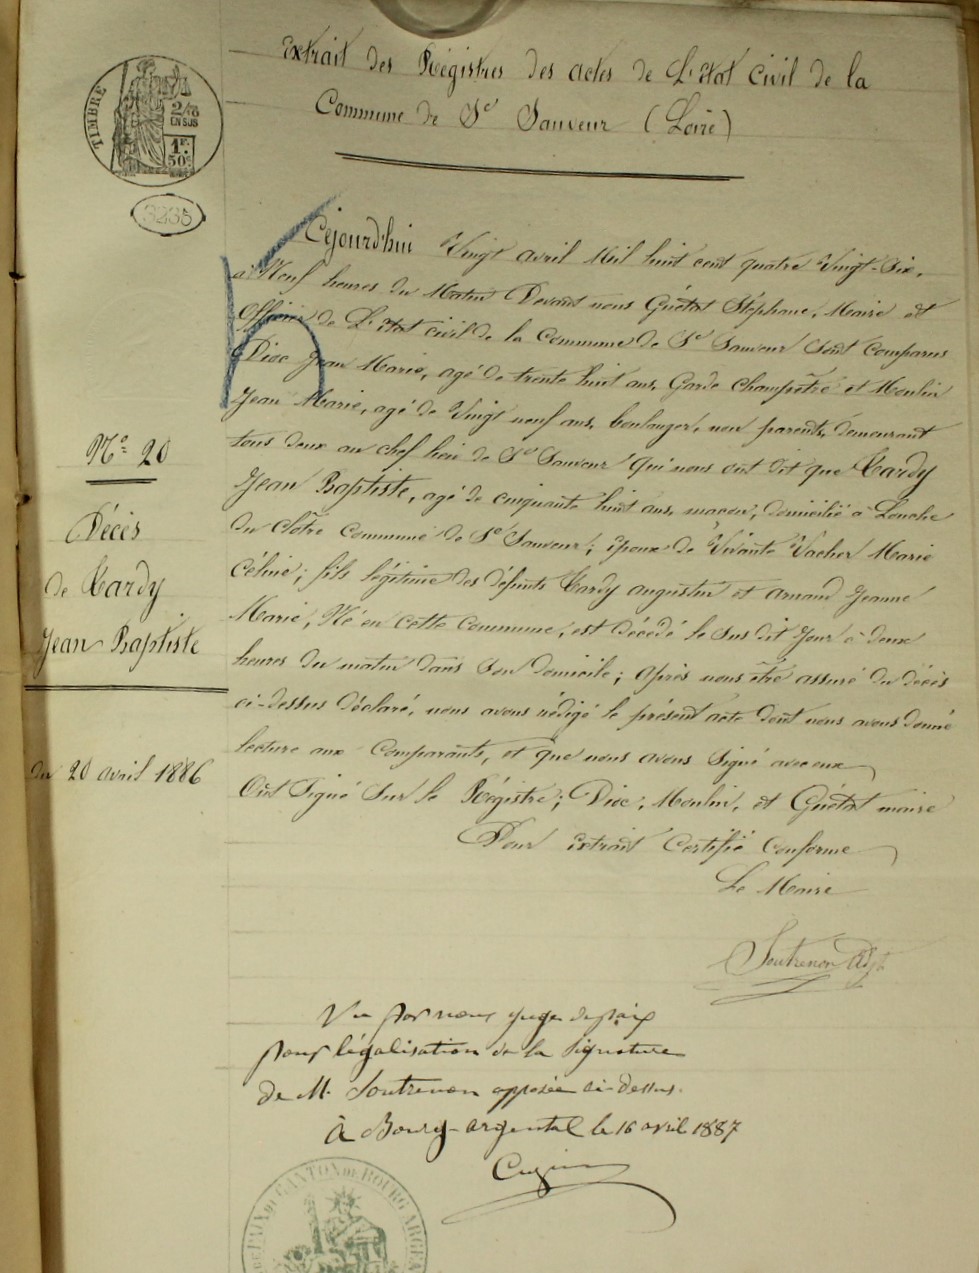 Extrait des Régistres des actes de L'Etat Civil de la
Commune de St Sauveur (Loire)
TIMBRE
2/10
EN SUS
1F.
50c
3238
Céjourd'hui Vingt avril Mil huit cent quatre Vingt-Six,
à Neuf heures du Matin Devant nous Guétat Stéphane, Maire et
Officier de L'Etat civil de la Commune de St Sauveur Sont Comparus
Dioc Jean Marie, agé de trente huit ans, Garde Champêtre et Moulin
Jean Marie, agé de Vingt neuf ans, boulanger, non parents, demeurant
tous deux au chef lieu de St Sauveur qui nous ont dit que Tardy
Jean Baptiste, agé de cinquante huit ans, maçon, domicilié à
du Clôtre Commune de St Sauveur; époux de Vivante Vacher Marie
Céline; fils légitime des défunts Tardy augustin et arnaud Jeanne
Marie, Né en cette Commune, est décédé le Sus dit Jour à deux
heures du matin dans Son domicile; Après nous être assuré du décès
ci-dessus déclaré, nous avons rédigé le présent acte dont nous avons donné
lecture aux Comparants, et que nous avons Signé avec eux
Ont Signé Sur le Régistre; Dioc, Moulin, et Guétat maire
Pour Extrait Certifié Conforme
Le Maire
Soutrenon Adjt
No 20
Décès
de Tardy
Jean Baptiste
du 20 avril 1886
Vu par nous juge de paix
pour légalisation de la Signature
de M. Soutrenon apposée ci-dessus.
à Bourg-argental le 16 avril 1887
DE PAIX DU CANTON DE BOURG ARGEN